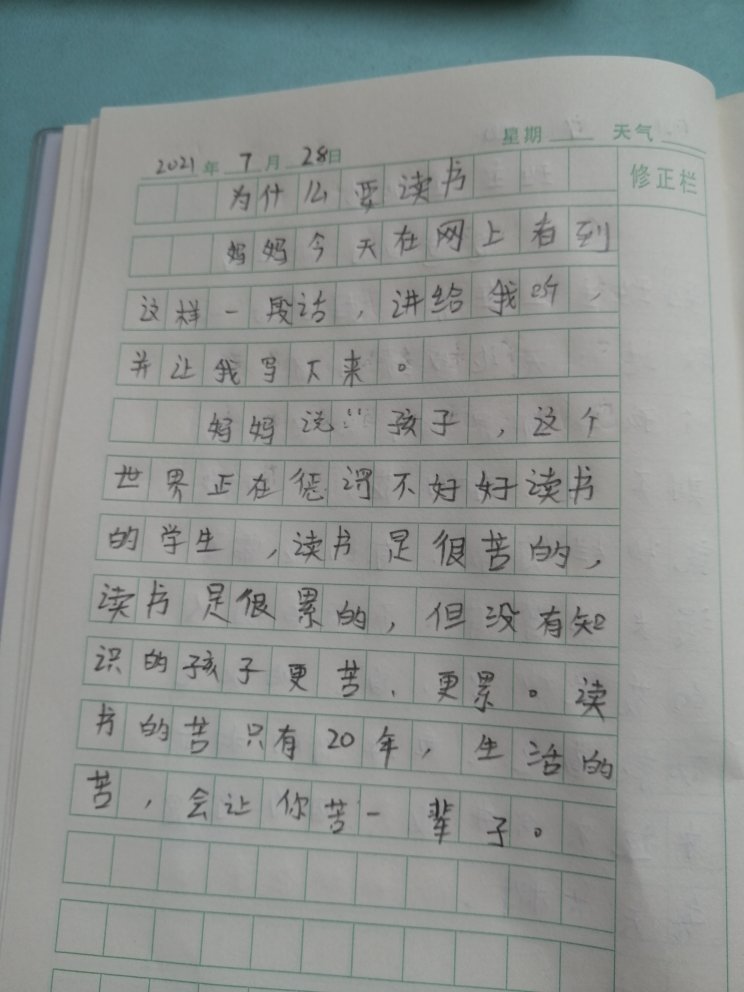 星期 天气
2021年 7月 28日
修正栏
为什么要读书
妈妈今天在网上看到
这样一段话，讲给我听，
并让我写下来。
妈妈说“孩子，这个
世界正在惩罚不好好读书
的学生，读书是很苦的，
读书是很累的，但没有知
识的孩子更苦、更累。读
书的苦只有20年，生活的
苦，会让你苦一辈子。